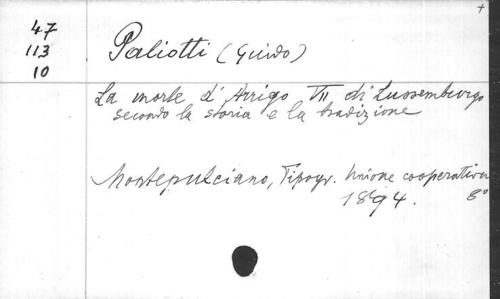 47
113
10
Paliotti (Guido)
La morte d'Arrigo VII di Lussemburgo
secondo la storia e la tradizione
Montepulciano, Tipogr. Unione cooperativa
1894. 8°